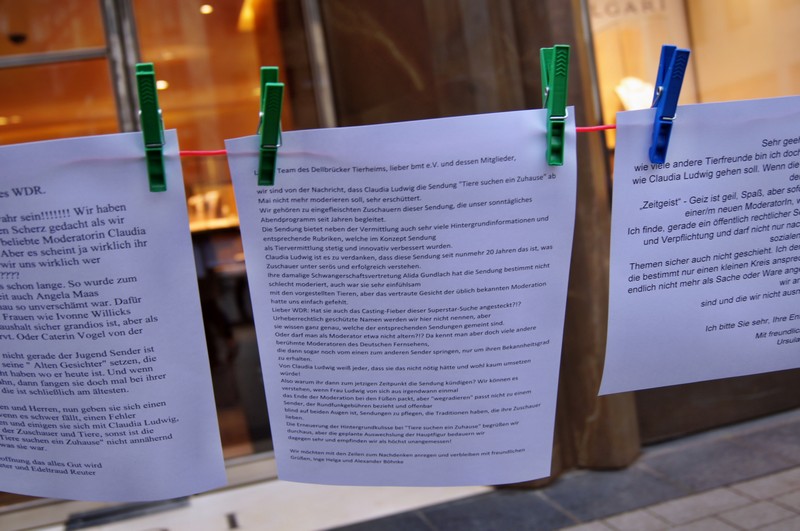 BVLGARI
es WDR.
ahr sein!!!!!!! Wir haben
en Scherz gedacht als wir
beliebte Moderatorin Claudia
Aber es scheint ja wirklich ihr
wir uns wirklich wer
????
s schon lange. So wurde zum
eit auch Angela Maas
so unverschämt war. Dafür
Frauen wie Ivonne Willicks
aushalt sicher grandios ist, aber als
rvt. Oder Caterin Vogel von der
nicht gerade der Jugend Sender ist
seine " Alten Gesichter" setzen, die
ht haben wo er heute ist. Und wenn
ahn, dann fangen sie doch mal bei ihrer
die ist schließlich am ältesten.
en und Herren, nun geben sie sich einen
enn es schwer fällt, einen Fehler
n und einigen sie sich mit Claudia Ludwig,
der Zuschauer und Tiere, sonst ist die
Tiere suchen ein Zuhause" nicht annähernd
was sie war.
offnung das alles Gut wird
nter und Edeltraud Reuter
Team des Dellbrücker Tierheims, lieber bmt e.V. und dessen Mitglieder,
wir sind von der Nachricht, dass Claudia Ludwig die Sendung "Tiere suchen ein Zuhause" ab
Mai nicht mehr moderieren soll, sehr erschüttert.
Wir gehören zu eingefleischten Zuschauern dieser Sendung, die unser sonntägliches
Abendprogramm seit Jahren begleitet.
Die Sendung bietet neben der Vermittlung auch sehr viele Hintergrundinformationen und
entsprechende Rubriken, welche im Konzept Sendung
als Tiervermittlung stetig und innovativ verbessert wurden.
Claudia Ludwig ist es zu verdanken, dass diese Sendung seit nunmehr 20 Jahren das ist, was
Zuschauer unter seriös und erfolgreich verstehen.
Ihre damalige Schwangerschaftsvertretung Alida Gundlach hat die Sendung bestimmt nicht
schlecht moderiert, auch war sie sehr einfühlsam
mit den vorgestellten Tieren, aber das vertraute Gesicht der üblich bekannten Moderation
hatte uns einfach gefehlt.
Lieber WDR: Hat sie auch das Casting-Fieber dieser Superstar-Suche angesteckt?!?
Urheberrechtlich geschützte Namen werden wir hier nicht nennen, aber
sie wissen ganz genau, welche der entsprechenden Sendungen gemeint sind.
Oder darf man als Moderator etwa nicht altern?!? Da kennt man aber doch viele andere
berühmte Moderatoren des Deutschen Fernsehens,
die dann sogar noch vom einen zum anderen Sender springen, nur um ihren Bekanheitsgrad
zu erhalten.
Von Claudia Ludwig weiß jeder, dass sie das nicht nötig hätte und wohl kaum umsetzen
würde!
Also warum ihr dann zum jetzigen Zeitpunkt die Sendung kündigen? Wir können es
verstehen, wenn Frau Ludwig von sich aus irgendwann einmal
das Ende der Moderation bei den Füßen packt, aber "wegradieren" passt nicht zu einem
Sender, der Rundfunkgebühren bezieht und offenbar
blind auf beiden Augen ist, Sendungen zu pflegen, die Traditionen haben, die ihre Zuschauer
lieben.
Die Erneuerung der Hintergrundkulisse bei "Tiere suchen ein Zuhause" begrüßen wir
durchaus, aber die geplante Auswechslung der Hauptfigur bedauern wir
dagegen sehr und empfinden wir als höchst unangemessen!
Wir möchten mit den Zeilen zum Nachdenken anregen und verbleiben mit freundlichen
Grüßen, Inge Helga und Alexander Böhnke
Sehr geeh
wie viele andere Tierfreunde bin ich doch
wie Claudia Ludwig gehen soll. Wenn die
de
„Zeitgeist" - Geiz ist geil, Spaß, aber sofo
einer/m neuen ModeratorIn, w
Ich finde, gerade ein öffentlich rechtlicher S
und Verpflichtung und darf nicht nur nac
soziale
Themen sicher auch nicht geschieht. Ich de
die bestimmt nur einen kleinen Kreis anspre
endlich nicht mehr als Sache oder Ware ange
wir ar
sind und die wir nicht ausn
Ich bitte Sie sehr, Ihre En
Mit freundlich
Ursula